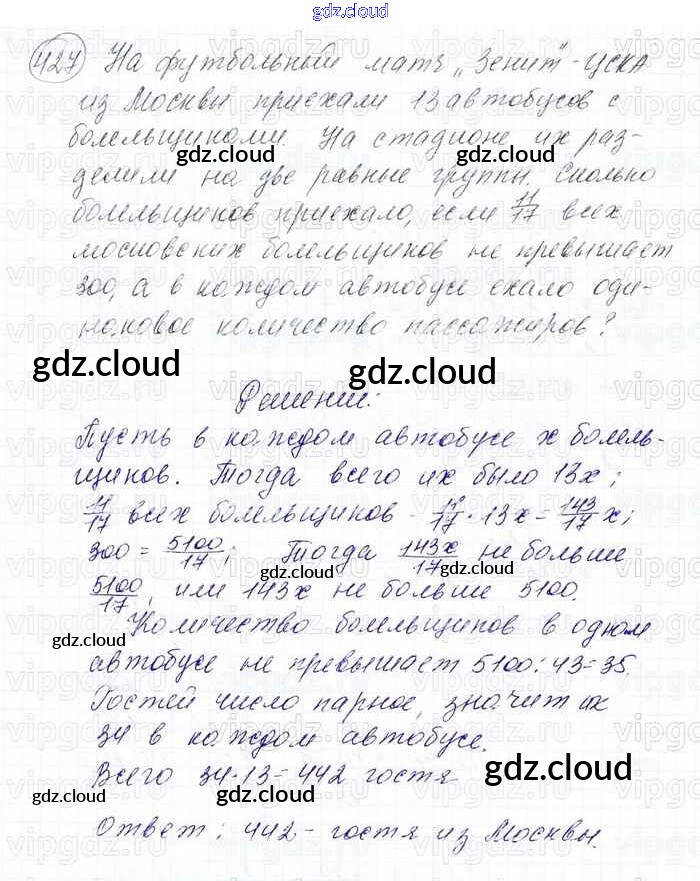 gdz.cloud
427 На футбольный матч „Зенит"-ЦСКА
из Москвы приехали 13 автобусов с
болельщиками. На стадионе их раз-
делили на две равные группы. Сколько
болельщиков приехало, если 11/17 всех
московских болельщиков не превышает
300, а в каждом автобусе ехало оди-
наковое количество пассажиров?
Решение:
Пусть в каждом автобусе x болель-
щиков. Тогда всего их было 13x;
11/17 всех болельщиков - 11/17 · 13x = 143/17 x;
300 = 5100/17; Тогда 143x/17 не больше
5100/17, или 143x не больше 5100.
Количество болельщиков в одном
автобусе не превышает 5100:43=35.
Гостей число парное, значит их
34 в каждом автобусе.
Всего 34·13=442 гостя
Ответ: 442 - гостя из Москвы.